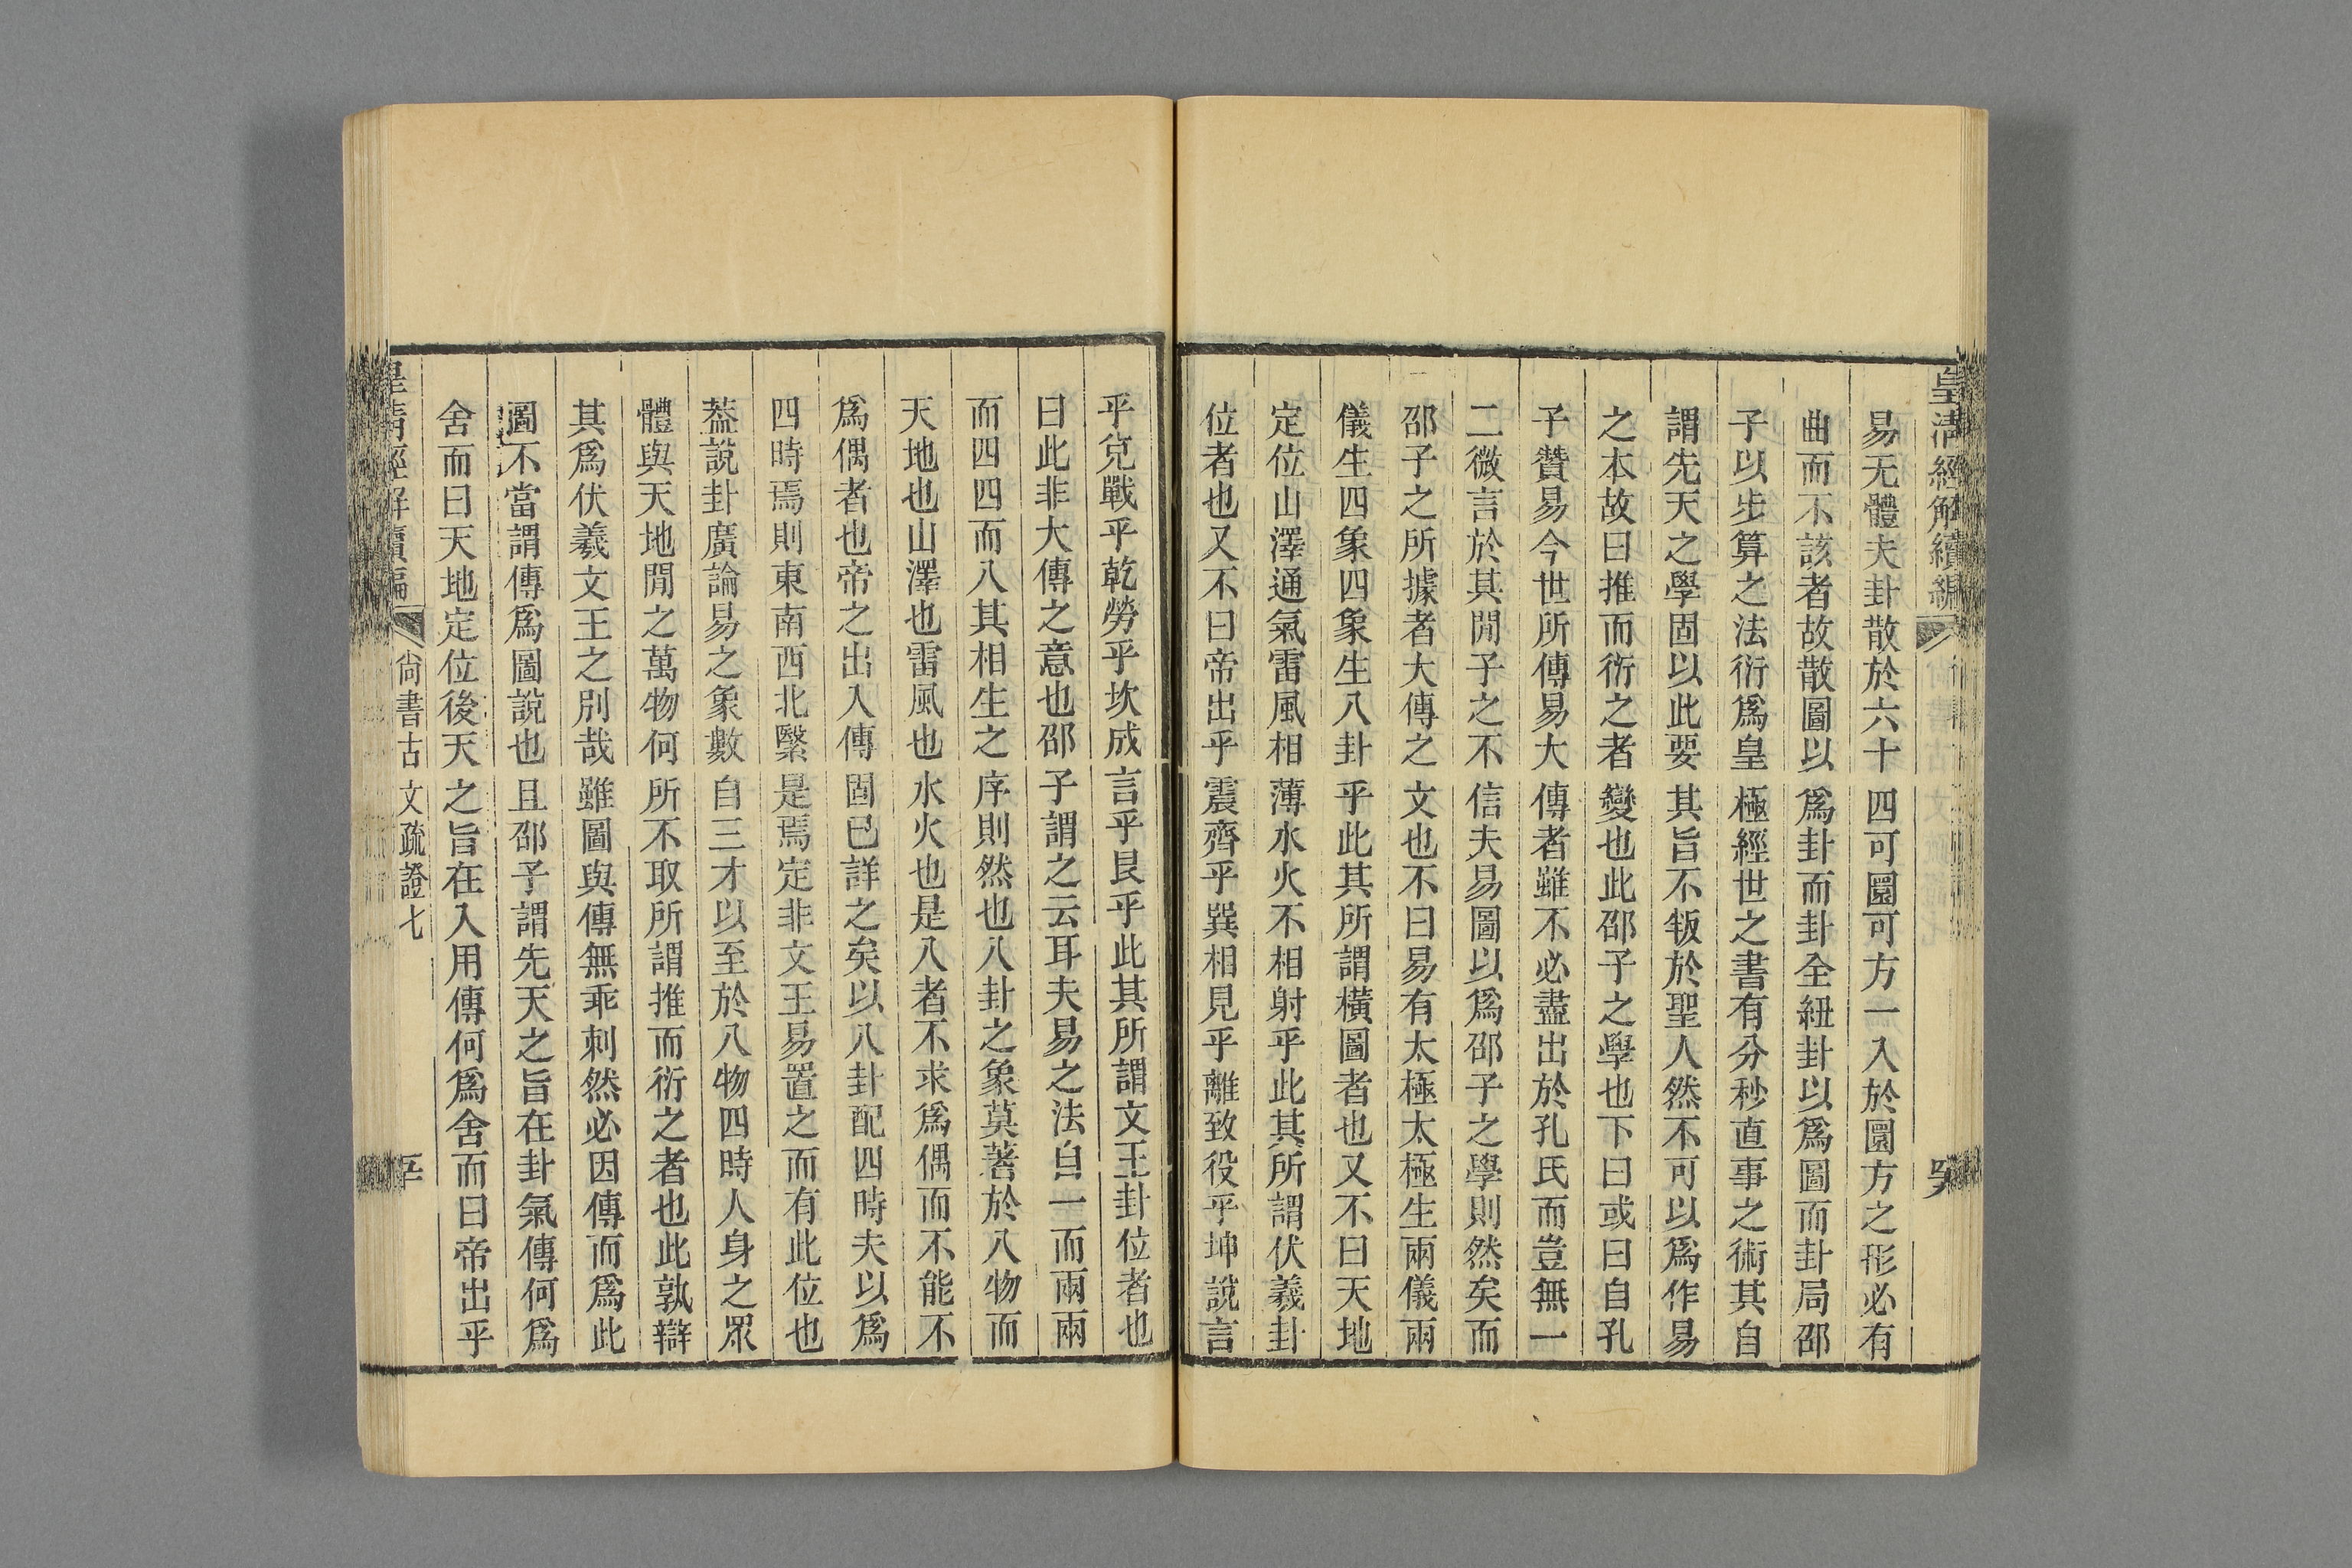 皇清經解續編
易无體夫卦散於六十四可圜可方一入於圜方之形必有
曲而不該者故散圖以爲卦而卦全紐卦以爲圖而卦局邵
子以步算之法衍爲皇極經世之書有分秒直事之術其自
謂先天之學固以此要其旨不叛於聖人然不可以爲作易
之本故曰推而衍之者變也此邵子之學也下曰或曰自孔
子贊易今世所傳易大傳者雖不必盡出於孔氏而豈無一
二微言於其閒子之不信夫易圖以爲邵子之學則然矣而
邵子之所據者大傳之文也不曰易有太極太極生兩儀兩
儀生四象四象生八卦乎此其所謂橫圖者也又不曰天地
定位山澤通氣雷風相薄水火不相射乎此其所謂伏羲卦
位者也又不曰帝出乎震齊乎巽相見乎離致役乎坤說言
乎兌戰乎乾勞乎坎成言乎艮乎此其所謂文王卦位者也
曰此非大傳之意也邵子謂之云耳夫易之法自一而兩兩
而四四而八其相生之序則然也八卦之象莫著於八物而
天地也山澤也雷風也水火也是八者不求爲偶而不能不
爲偶者也帝之出入傳固已詳之矣以八卦配四時夫以爲
四時焉則東南西北繫是焉定非文王易置之而有此位也
葢說卦廣論易之象數自三才以至於八物四時人身之眾
體與天地閒之萬物何所不取所謂推而衍之者也此孰辯
其爲伏羲文王之別哉雖圖與傳無乖刺然必因傳而爲此
圖不當謂傳爲圖說也且邵子謂先天之旨在卦氣傳何爲
舍而曰天地定位後天之旨在入用傳何爲舍而曰帝出乎
皇清經解續編 尙書古文疏證七